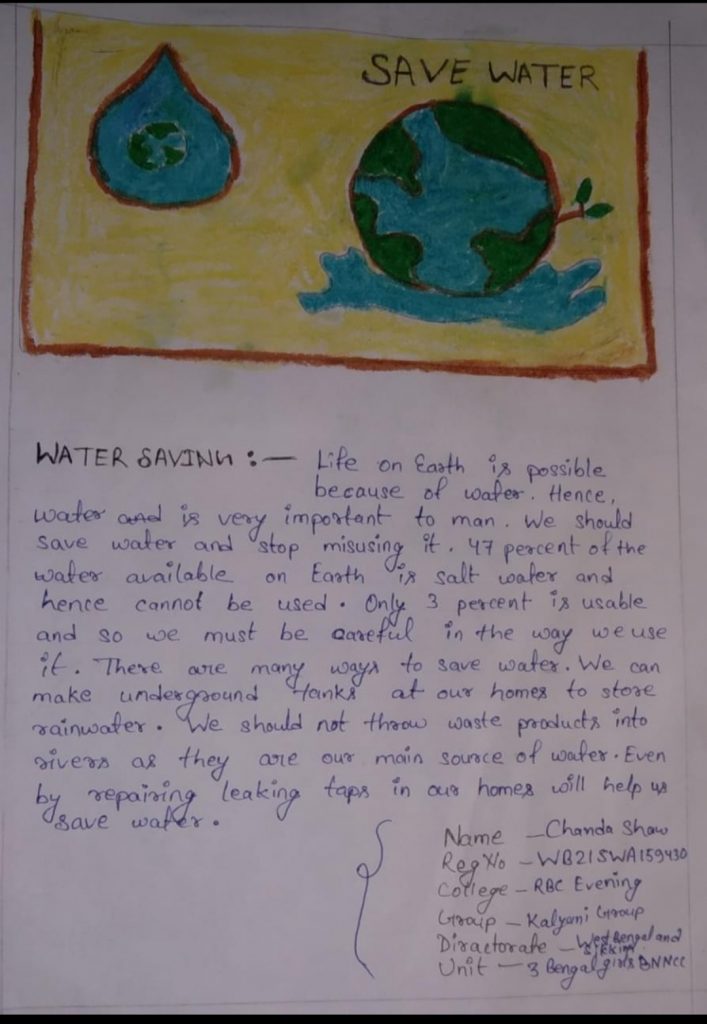 SAVE WATER
WATER SAVING :— Life on Earth is possible
because of water. Hence,
water and is very important to man. We should
save water and stop misusing it. 47 percent of the
water available on Earth is salt water and
hence cannot be used. Only 3 percent is usable
and so we must be careful in the way we use
it. There are many ways to save water. We can
make underground tanks at our homes to store
rainwater. We should not throw waste products into
rivers as they are our main source of water. Even
by repairing leaking taps in our homes will help us
save water.
Name - Chanda Shaw
Reg No - WB21SWA159430
College - RBC Evening
Graip - Kalyani Group
Diractorate - West Bengal and
Sikkim
Unit - 3 Bengal girls BN NCC